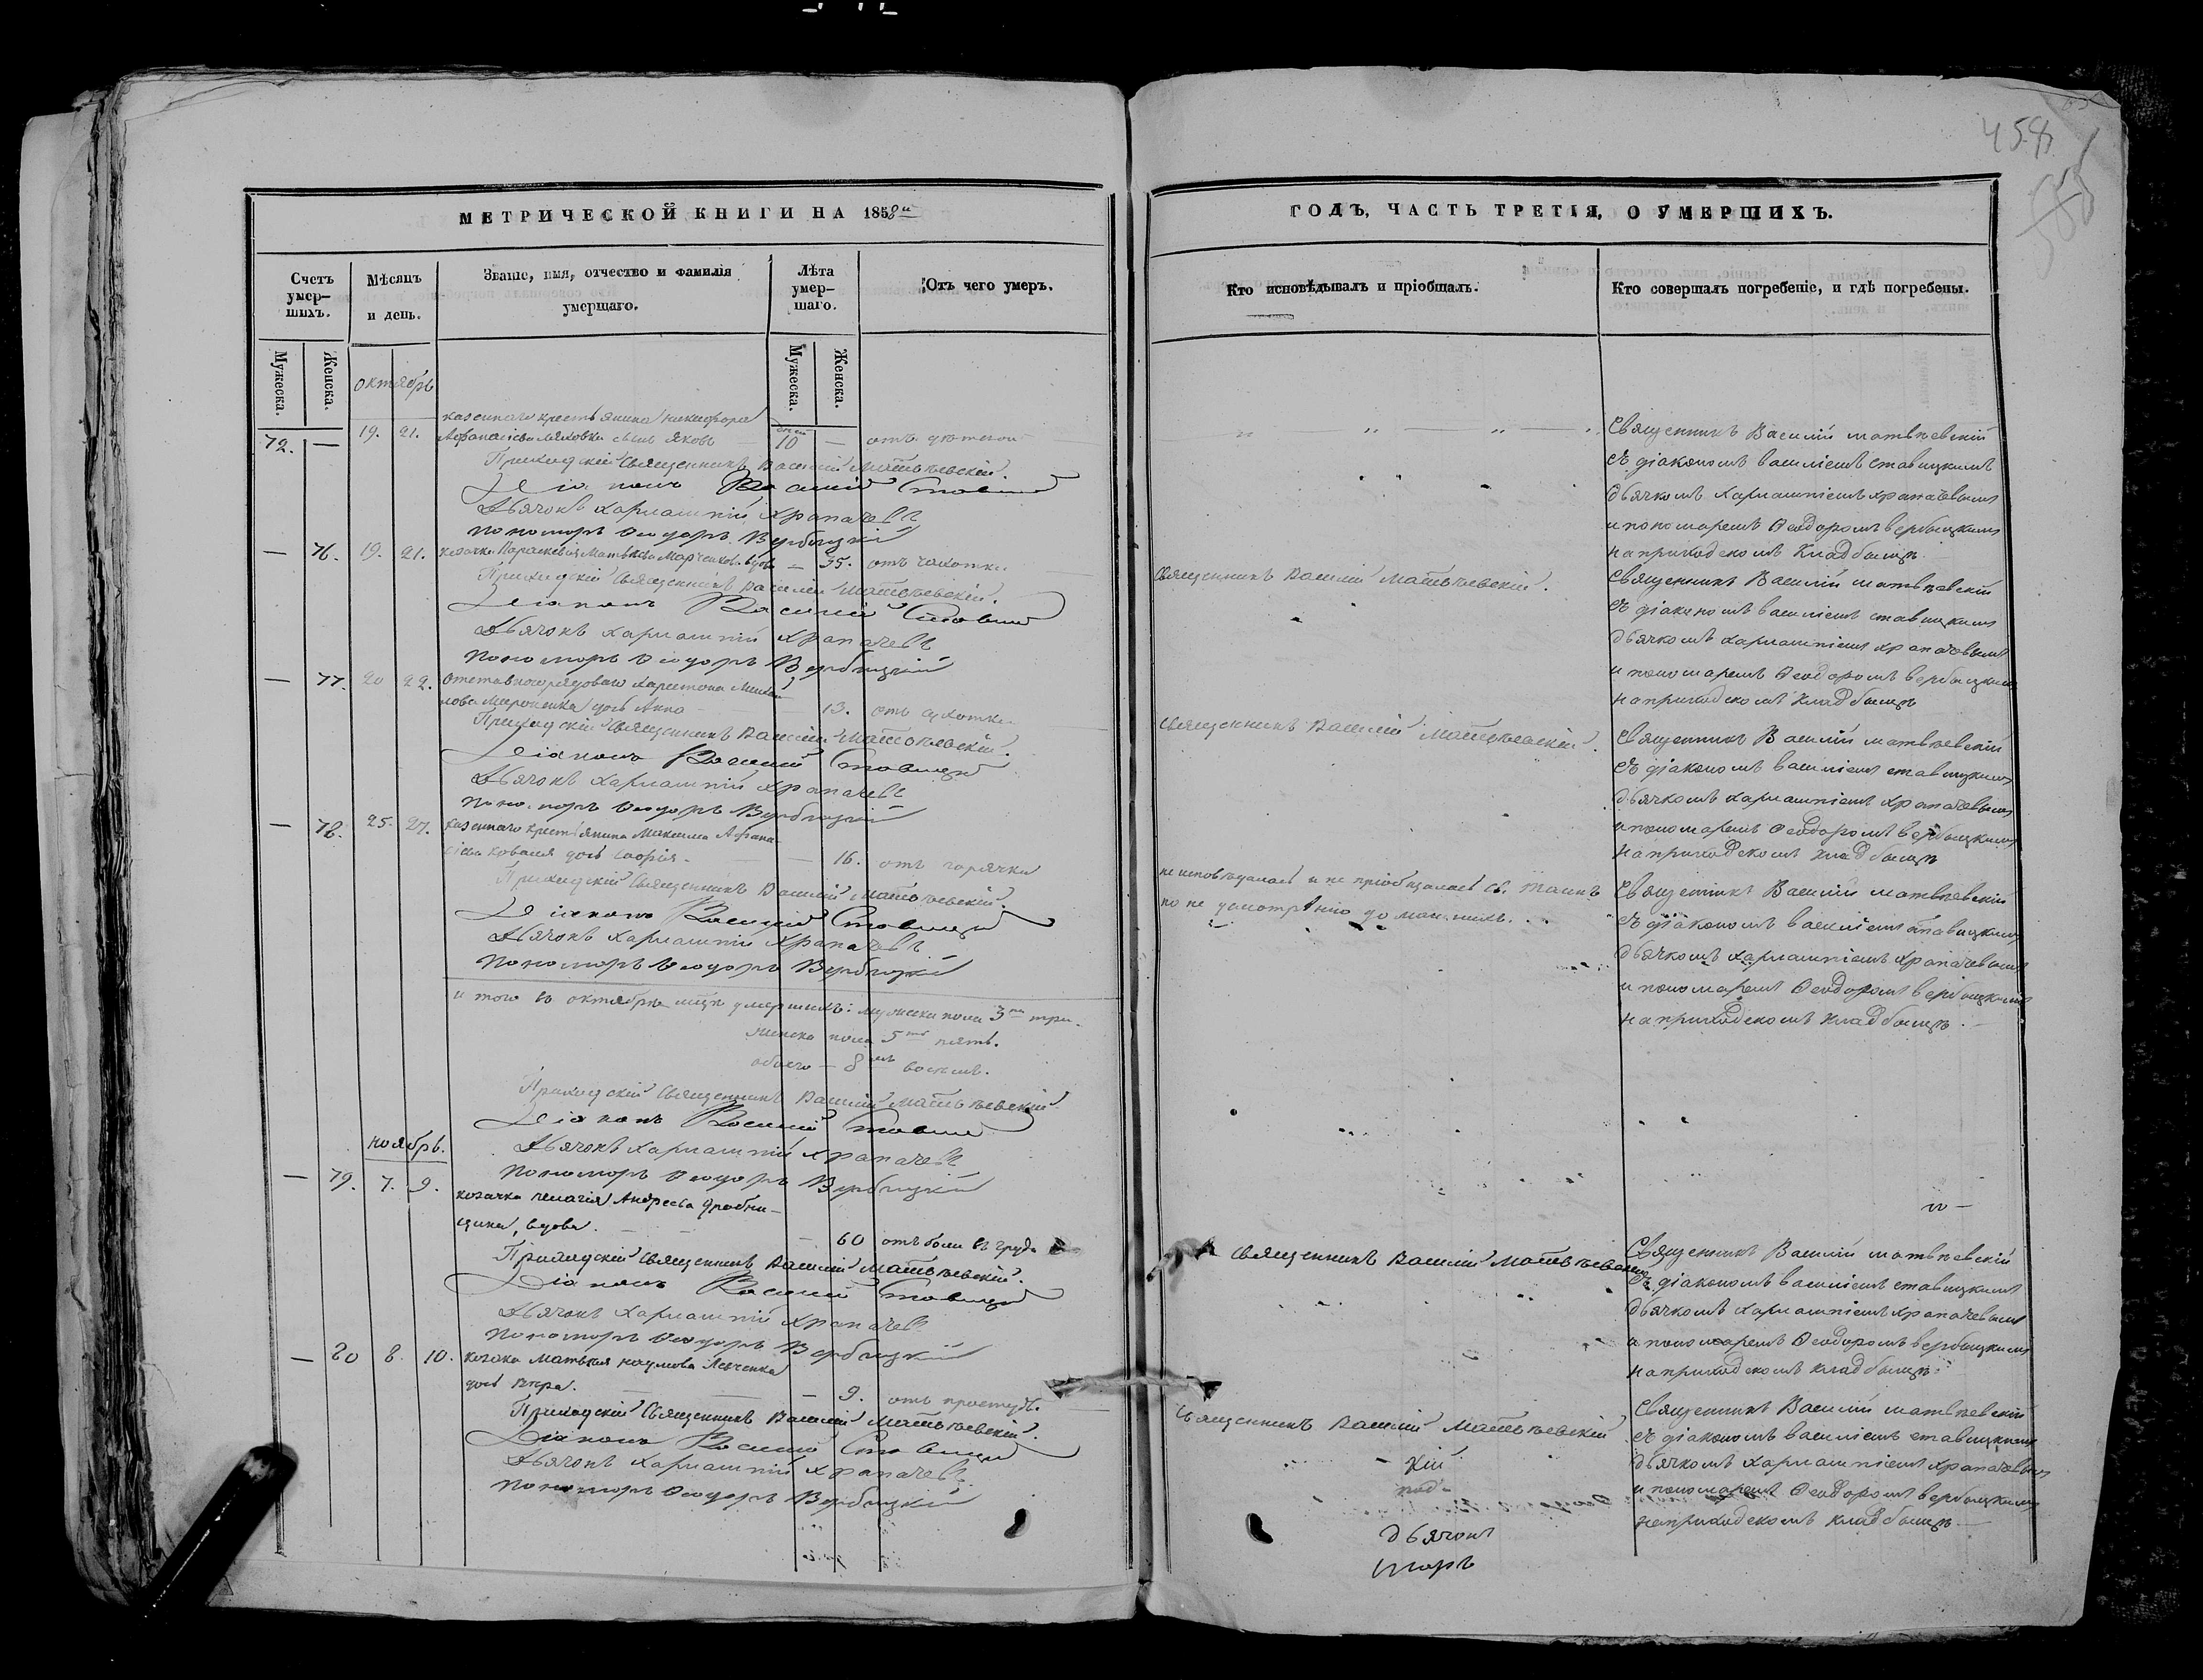 458
МЕТРИЧЕСКОЙ КНИГИ НА 1858й
ГОДЪ, ЧАСТЬ ТРЕТІЯ, О УМЕРШИХЪ.
Счетъ умер-
шихъ.
Мѣсяцъ
и день.
Званіе, имя, отчество и фамилія
умершаго.
Лѣта
умер-
шаго.
Отъ чего умеръ.
Кто исповѣдывалъ и пріобщалъ.
Кто совершалъ погребеніе, и гдѣ погребены.
Мужеска.
Женска.
Мужеска.
Женска.
октябрь
казеннаго крестьянина Никифора
72. — 19. 21. Афанасіева сынъ Яковъ 10 —
Приходскій Священникъ Василій Матвѣевскій
Діаконъ Василій Ставицкій
Дьячокъ Харлампій Храпачевъ
Пономарь Ѳеодоръ Вербицкій
— 76. 19. 21. козачка Параскевія Матвѣева — 35. отъ чахотки
Приходскій Священникъ Василій Матвѣевскій.
Діаконъ Василій Ставицкій
Дьячокъ Харлампій Храпачевъ
Пономарь Ѳеодоръ Вербицкій
— 77. 20 22. отставного рядового Харитона Михай-
лова Мироненка дочь Анна 13. отъ сухотки
Приходскій Священникъ Василій Матвѣевскій.
Діаконъ Василій Ставицкій
Дьячокъ Харлампій Храпачевъ
Пономарь Ѳеодоръ Вербицкій
— 78. 25. 27. казеннаго крестьянина Максима Афана-
сіева Коваля дочь Софія — 16. отъ горячки
Приходскій Священникъ Василій Матвѣевскій.
Діаконъ Василій Ставицкій
Дьячокъ Харлампій Храпачевъ
Пономарь Ѳеодоръ Вербицкій
итого въ октябрѣ мцѣ умершихъ: мужеска пола 3ри три.
женска пола 5ть пять.
обоего — 8мь восемь.
Приходскій Священникъ Василій Матвѣевскій
Діаконъ Василій Ставицкій
Дьячокъ Харлампій Храпачевъ
Пономарь Ѳеодоръ Вербицкій
ноябрь.
— 79. 7. 9. козачка Пелагія Андреева
вдова. — 60 отъ боли въ груди
Приходскій Священникъ Василій Матвѣевскій.
Діаконъ Василій Ставицкій
Дьячокъ Харлампій Храпачевъ
Пономарь Ѳеодоръ Вербицкій
— 80 8. 10. козака Матвѣя Наумова
дочь Вѣра. — 9. отъ простуды.
Приходскій Священникъ Василій Матвѣевскій.
Діаконъ Василій Ставицкій
Дьячокъ Харлампій Храпачевъ
Пономарь Ѳеодоръ Вербицкій
Священникъ Василій Матвѣевскій.
Священникъ Василій Матвѣевскій.
не исповѣдалась и не пріобщалась Св. Таинъ
по не усмотрѣнію домашнихъ.
Священникъ Василій Матвѣевскій
Священникъ Василій Матвѣевскій
кій
дьячокъ
Священникъ Василій Матвѣевскій
съ діакономъ Василіемъ Ставицкимъ
дьячкомъ Харлампіемъ Храпачевымъ
и пономаремъ Ѳеодоромъ Вербицкимъ
на приходскомъ кладбищѣ
Священникъ Василій Матвѣевскій
съ діакономъ Василіемъ Ставицкимъ
дьячкомъ Харлампіемъ Храпачевымъ
и пономаремъ Ѳеодоромъ Вербицкимъ
на приходскомъ кладбищѣ
Священникъ Василій Матвѣевскій
съ діакономъ Василіемъ Ставицкимъ
дьячкомъ Харлампіемъ Храпачевымъ
и пономаремъ Ѳеодоромъ Вербицкимъ
на приходскомъ кладбищѣ
Священникъ Василій Матвѣевскій
съ діакономъ Василіемъ Ставицкимъ
дьячкомъ Харлампіемъ Храпачевымъ
и пономаремъ Ѳеодоромъ Вербицкимъ
на приходскомъ кладбищѣ.
Священникъ Василій Матвѣевскій
съ діакономъ Василіемъ Ставицкимъ
дьячкомъ Харлампіемъ Храпачевымъ
и пономаремъ Ѳеодоромъ Вербицкимъ
на приходскомъ кладбищѣ.
Священникъ Василій Матвѣевскій
съ діакономъ Василіемъ Ставицкимъ
дьячкомъ Харлампіемъ Храпачевымъ
и пономаремъ Ѳеодоромъ Вербицкимъ
на приходскомъ кладбищѣ.